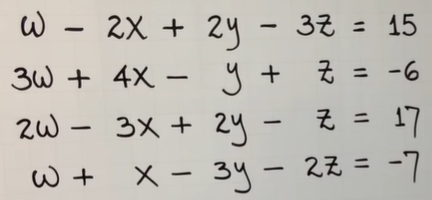 w - 2x + 2y - 3z = 15
3w + 4x - y + z = -6
2w - 3x + 2y - z = 17
w + x - 3y - 2z = -7